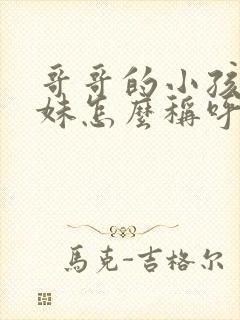 哥哥的小孩
妹怎麼稱呼
馬克-吉格尔